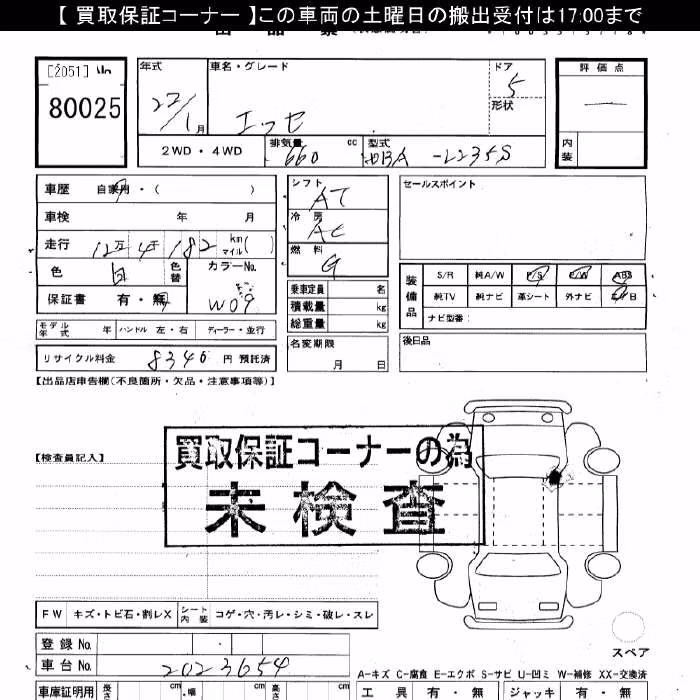 【 買取保証コーナー 】この車両の土曜日の搬出受付は17:00まで
[2051]
80025
年式 車名・グレード ドア 評価点
22/1月 エッセ 5 形状
2WD・4WD 排気量 660 cc 型式 -L235S 内装
車歴 自家用・( ) シフト AT セールスポイント
車検 年 月 冷房 AC
走行 12万 4千 182 km マイル ( ) 燃料 G
色 白 色替 カラーNo. W09
保証書 有・無
乗車定員 名
積載量 kg
総重量 kg
装備品 S/R 純A/W P/S P/W ABS
純TV 純ナビ 革シート 外ナビ
ナビ型番:
モデル年式 年 ハンドル 左・右 ディーラー・並行
名変期限 月 日
後日品
リサイクル料金 8340 円 預託済
【出品店申告欄(不良箇所・欠品・注意事項等)】
【検査員記入】
買取保証コーナーの為
未検査
FW キズ・トビ石・割レX シート内装 コゲ・穴・汚レ・シミ・破レ・スレ
登録No.
車台No. 2023654
スペア
A-キズ C-腐食 E-エクボ S-サビ U-凹ミ W-補修 XX-交換済
車庫証明用 長さ cm 幅 cm 高さ cm 工具 有・無 ジャッキ 有・無